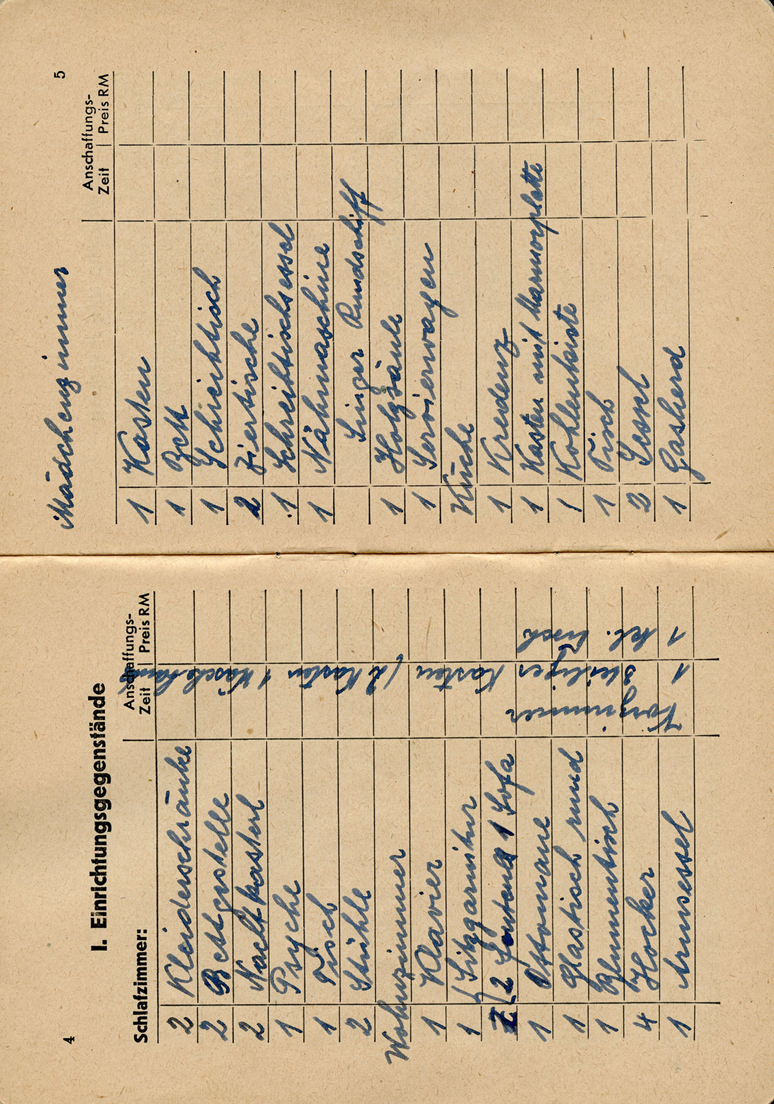 4
I. Einrichtungsgegenstände
Schlafzimmer:
Anschaffungs-
Zeit Preis RM
2 Kleiderschränke
2 Bettgestelle
2 Nachtkasterl
1 Psyche
1 Tisch
2 Stühle
Wohnzimmer
1 Klavier
1 Sitzgarnitur
2 Fauteuil 1 Sofa
1 Ottomane
1 Glastisch rund
1 Blumentisch
4 Hocker
1 Armsessel
Vorzimmer
1 3teiliger Kasten (2 Kasten 1 Wäschekasten
1 kl. Tisch
5
Mädchenzimmer
Anschaffungs-
Zeit Preis RM
1 Kasten
1 Bett
1 Schreibtisch
2 Ziertische
1 Schreibtischsessel
1 Nähmaschine
Singer Rundschiff
1 Holzsäule
1 Servierwagen
Küche
1 Kredenz
1 Kasten mit Marmorplatte
1 Kohlenkiste
1 Tisch
2 Sessel
1 Gasherd